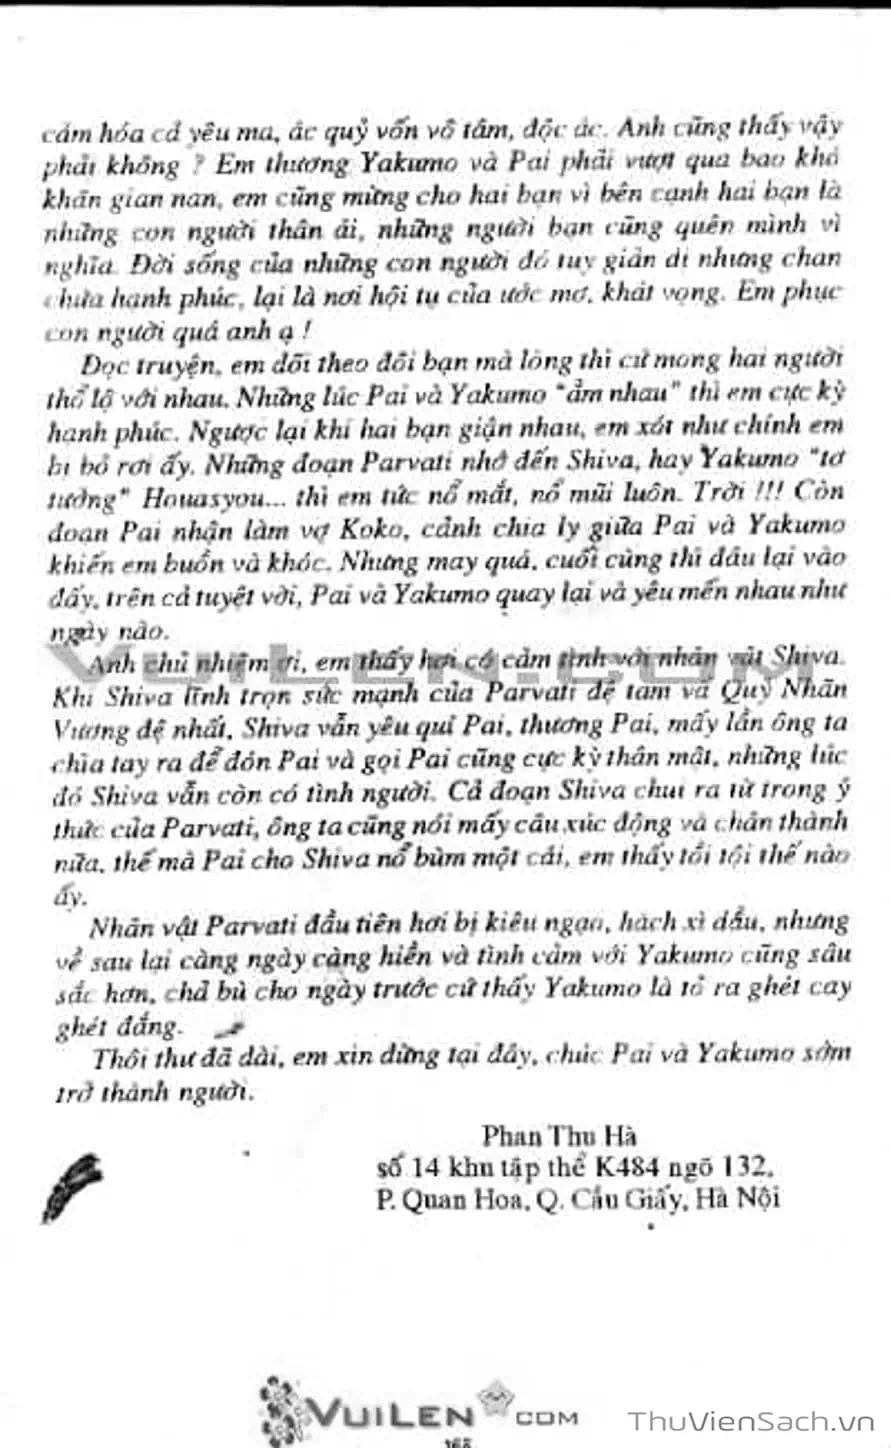 cảm hóa cả yêu ma, ác quỷ vốn vô tâm, độc ác. Anh cũng thấy vậy
phải không ? Em thương Yakumo và Pai phải vượt qua bao khó
khăn gian nan, em cũng mừng cho hai bạn vì bên cạnh hai bạn là
những con người thân ái, những người bạn cũng quên mình vì
nghĩa. Đời sống của những con người đó tuy giản dị nhưng chan
chứa hạnh phúc, lại là nơi hội tụ của ước mơ, khát vọng. Em phục
con người quá anh ạ !
Đọc truyện, em dõi theo đôi bạn mà lòng thì cứ mong hai người
thổ lộ với nhau. Những lúc Pai và Yakumo "ẵm nhau" thì em cực kỳ
hạnh phúc. Ngược lại khi hai bạn giận nhau, em xót như chính em
bị bỏ rơi ấy. Những đoạn Parvati nhớ đến Shiva, hay Yakumo "tơ
tưởng" Houasyou... thì em tức nổ mắt, nổ mũi luôn. Trời !!! Còn
đoạn Pai nhận làm vợ Koko, cảnh chia ly giữa Pai và Yakumo
khiến em buồn và khóc. Nhưng may quá, cuối cùng thì đâu lại vào
đấy, trên cả tuyệt vời, Pai và Yakumo quay lại và yêu mến nhau như
ngày nào.
Anh chủ nhiệm ơi, em thấy hơi có cảm tình với nhân vật Shiva.
Khi Shiva lĩnh trọn sức mạnh của Parvati đệ tam và Quỷ Nhãn
Vương đệ nhất, Shiva vẫn yêu quí Pai, thương Pai, mấy lần ông ta
chìa tay ra để đón Pai và gọi Pai cũng cực kỳ thân mật, những lúc
đó Shiva vẫn còn có tình người. Cả đoạn Shiva chui ra từ trong ý
thức của Parvati, ông ta cũng nói mấy câu xúc động và chân thành
nữa, thế mà Pai cho Shiva nổ bùm một cái, em thấy tồi tội thế nào
ấy.
Nhân vật Parvati đầu tiên hơi bị kiêu ngạo, hách xì dầu, nhưng
về sau lại càng ngày càng hiền và tình cảm với Yakumo cũng sâu
sắc hơn, chả bù cho ngày trước cứ thấy Yakumo là tỏ ra ghét cay
ghét đắng.
Thôi thư đã dài, em xin dừng tại đây, chúc Pai và Yakumo sớm
trở thành người.
Phan Thu Hà
số 14 khu tập thể K484 ngõ 132,
P. Quan Hoa, Q. Cầu Giấy, Hà Nội
VUILEN.COM
VUILEN COM
ThuVienSach.vn